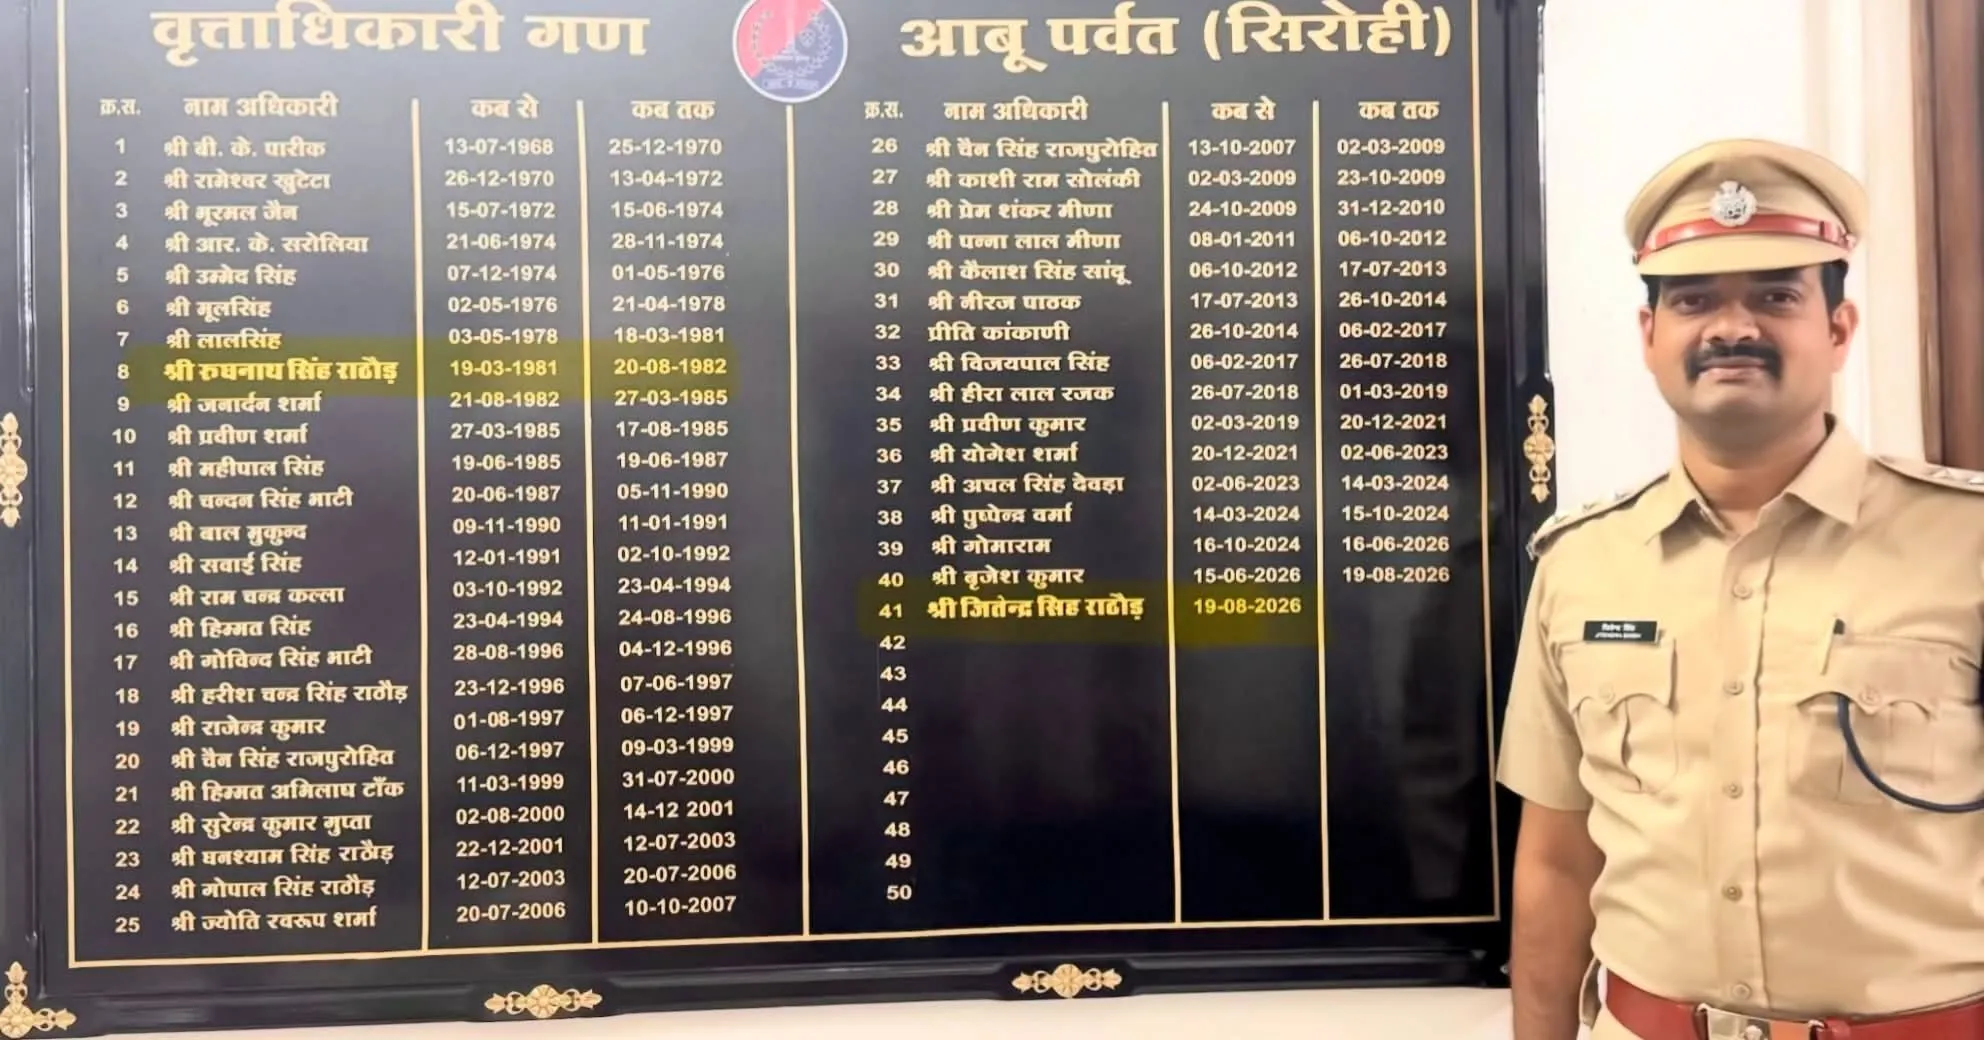 वृत्ताधिकारी गण आबू पर्वत (सिरोही)
क्र.स. नाम अधिकारी कब से कब तक
1 श्री बी. के. पारीक 13-07-1968 25-12-1970
2 श्री रामेश्वर खुटेटा 26-12-1970 13-04-1972
3 श्री भूरमल जैन 15-07-1972 15-06-1974
4 श्री आर. के. सरोलिया 21-06-1974 28-11-1974
5 श्री उम्मेद सिंह 07-12-1974 01-05-1976
6 श्री मूलसिंह 02-05-1976 21-04-1978
7 श्री लालसिंह 03-05-1978 18-03-1981
8 श्री रुघनाथ सिंह राठौड़ 19-03-1981 20-08-1982
9 श्री जनार्दन शर्मा 21-08-1982 27-03-1985
10 श्री प्रवीण शर्मा 27-03-1985 17-08-1985
11 श्री महीपाल सिंह 19-06-1985 19-06-1987
12 श्री चन्दन सिंह भाटी 20-06-1987 05-11-1990
13 श्री बाल मुकुन्द 09-11-1990 11-01-1991
14 श्री सवाई सिंह 12-01-1991 02-10-1992
15 श्री राम चन्द्र कल्ला 03-10-1992 23-04-1994
16 श्री हिम्मत सिंह 23-04-1994 24-08-1996
17 श्री गोविन्द सिंह भाटी 28-08-1996 04-12-1996
18 श्री हरीश चन्द्र सिंह राठौड़ 23-12-1996 07-06-1997
19 श्री राजेन्द्र कुमार 01-08-1997 06-12-1997
20 श्री चैन सिंह राजपुरोहित 06-12-1997 09-03-1999
21 श्री हिम्मत अभिलाष टाँक 11-03-1999 31-07-2000
22 श्री सुरेन्द्र कुमार गुप्ता 02-08-2000 14-12 2001
23 श्री घनश्याम सिंह राठौड़ 22-12-2001 12-07-2003
24 श्री गोपाल सिंह राठौड़ 12-07-2003 20-07-2006
25 श्री ज्योति स्वरूप शर्मा 20-07-2006 10-10-2007
क्र.स. नाम अधिकारी कब से कब तक
26 श्री चैन सिंह राजपुरोहित 13-10-2007 02-03-2009
27 श्री काशी राम सोलंकी 02-03-2009 23-10-2009
28 श्री प्रेम शंकर मीणा 24-10-2009 31-12-2010
29 श्री पन्ना लाल मीणा 08-01-2011 06-10-2012
30 श्री कैलाश सिंह सांदू 06-10-2012 17-07-2013
31 श्री नीरज पाठक 17-07-2013 26-10-2014
32 प्रीति कांकाणी 26-10-2014 06-02-2017
33 श्री विजयपाल सिंह 06-02-2017 26-07-2018
34 श्री हीरा लाल रजक 26-07-2018 01-03-2019
35 श्री प्रवीण कुमार 02-03-2019 20-12-2021
36 श्री योगेश शर्मा 20-12-2021 02-06-2023
37 श्री अचल सिंह देवड़ा 02-06-2023 14-03-2024
38 श्री पुष्पेन्द्र वर्मा 14-03-2024 15-10-2024
39 श्री गोमाराम 16-10-2024 16-06-2026
40 श्री बृजेश कुमार 15-06-2026 19-08-2026
41 श्री जितेन्द्र सिंह राठौड़ 19-08-2026
42
43
44
45
46
47
48
49
50